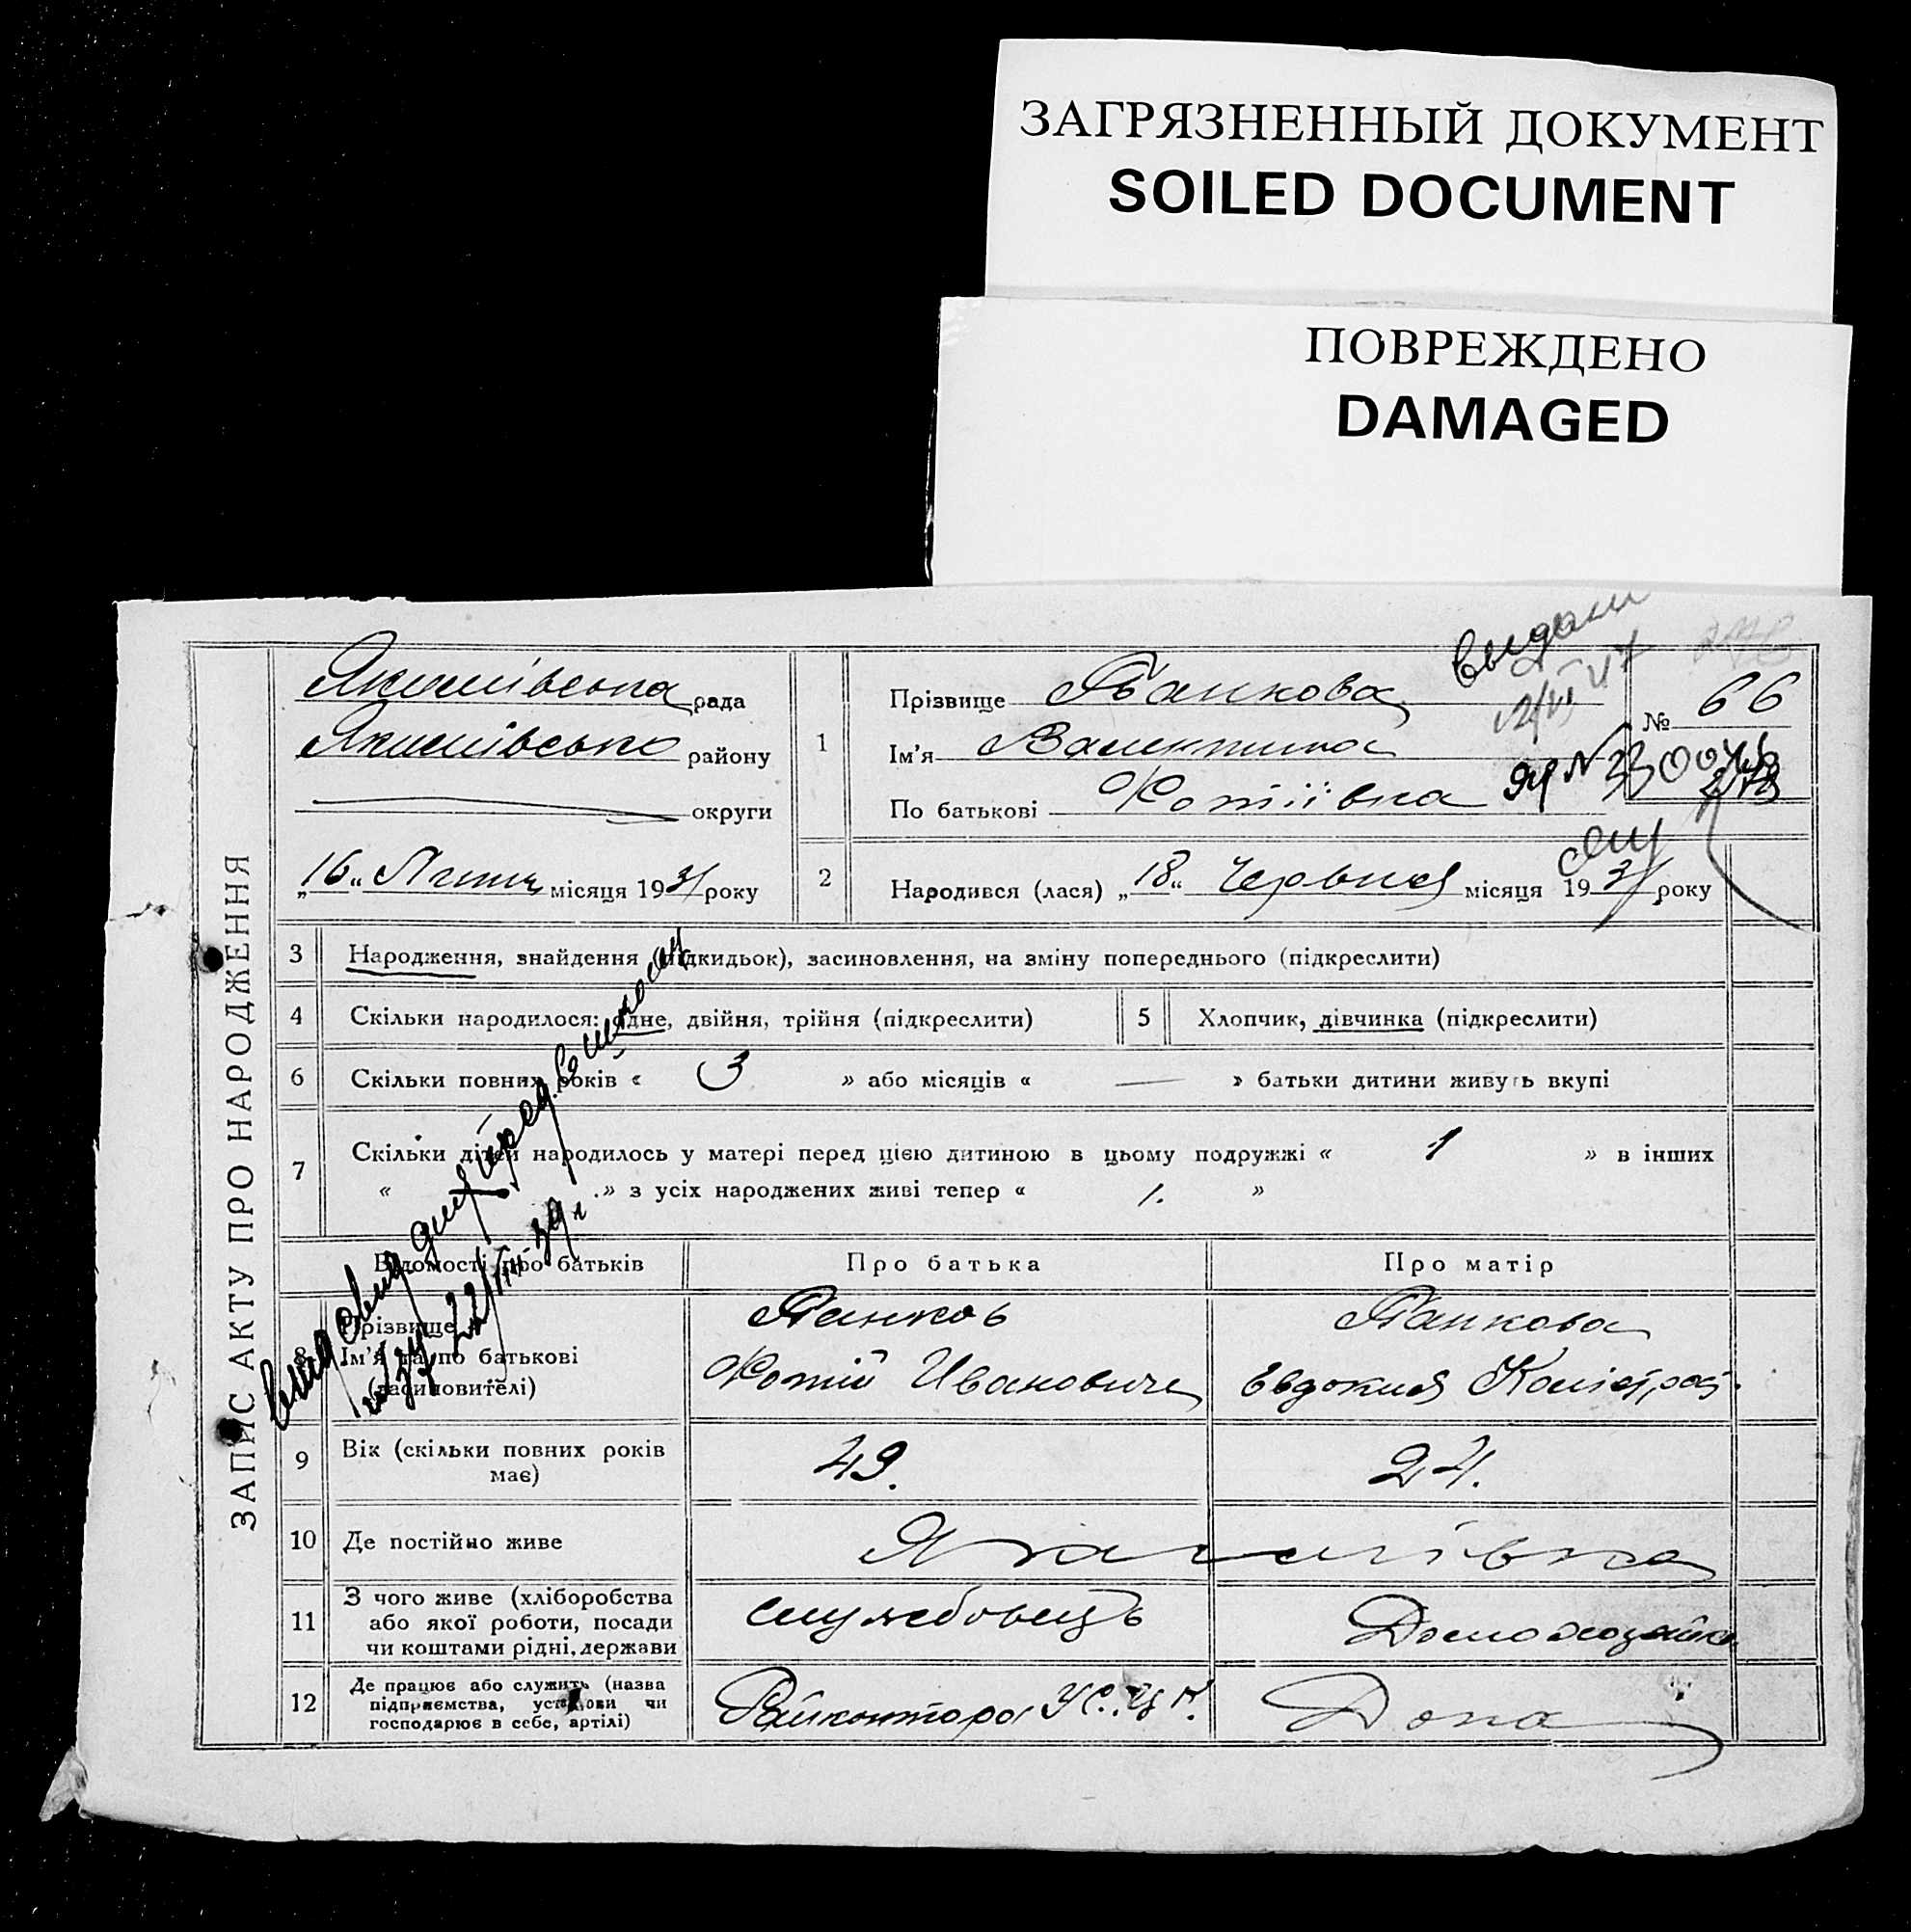 ЗАГРЯЗНЕННЫЙ ДОКУМЕНТ
SOILED DOCUMENT
ПОВРЕЖДЕНО
DAMAGED
ЗАПИС АКТУ ПРО НАРОДЖЕННЯ
Якимівська рада
Якимівсько району
округи
„16„ Липня місяця 1931 року
выдан
1 Прізвище Панкова
Ім'я Валентина
По батькові Фотіївна
№ 66
2 Народився (лася) „18„ Червня місяця 1931 року
3 Народження, знайдення (підкидьок), засиновлення, на зміну попереднього (підкреслити)
4 Скільки народилося: одне, двійня, трійня (підкреслити) 5 Хлопчик, дівчинка (підкреслити)
6 Скільки повних років « 3 » або місяців « — » батьки дитини живуть вкупі
7 Скільки дітей народилось у матері перед цією дитиною в цьому подружжі « 1 » в інших
« » з усіх народжених живі тепер « 1. »
Відомості про батьків Про батька Про матір
8 Прізвище
Ім'я та по батькові
(засиновителі)
Панков
Фотій Иванович
Панкова
Евдокия
9 Вік (скільки повних років має) 49. 24.
10 Де постійно живе Якимівка
11 З чого живе (хліборобства
або якої роботи, посади
чи коштами рідні, держави
службовець
Домохозяйка
12 Де працює або служить (назва
підприємства, установи чи
господарює в себе, артілі)
Райконтора
Дома